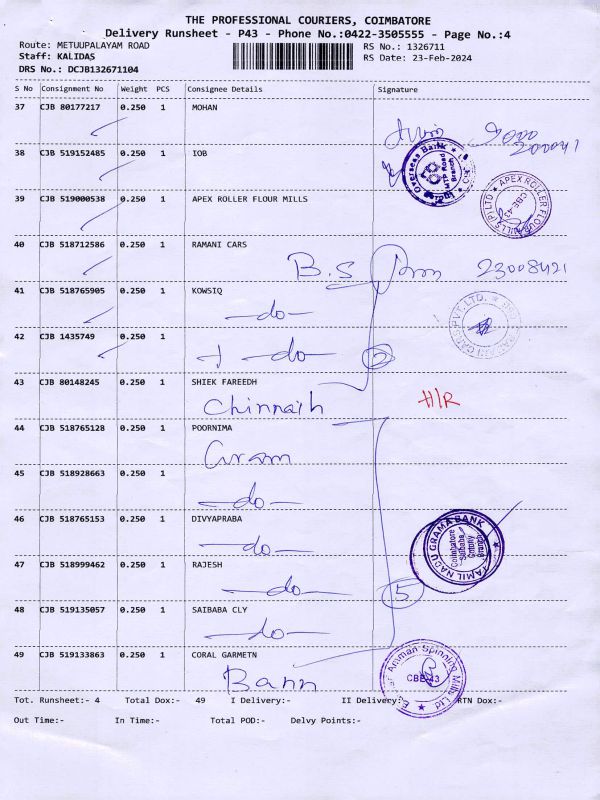 THE PROFESSIONAL COURIERS, COIMBATORE
Delivery Runsheet - P43 - Phone No.:0422-3505555 - Page No.:4
Route: METUUPALAYAM ROAD
RS No.: 1326711
Staff: KALIDAS
RS Date: 23-Feb-2024
DRS No.: DCJB132671104
S No Consignment No Weight PCS Consignee Details Signature
37 CJB 80177217 0.250 1 MOHAN
38 CJB 519152485 0.250 1 IOB
Overseas Bank
MTP Road Branch
39 CJB 519000538 0.250 1 APEX ROLLER FLOUR MILLS
APEX ROLLER FLOUR MILLS (P) LTD
CBE-43
40 CJB 518712586 0.250 1 RAMANI CARS
B.S
23008421
41 CJB 518765905 0.250 1 KOWSIQ
-do-
CARS PVT. LTD.
42 CJB 1435749 0.250 1
-do- 2
43 CJB 80148245 0.250 1 SHIEK FAREEDH
Chinnaih H/R
44 CJB 518765128 0.250 1 POORNIMA
45 CJB 518928663 0.250 1
-do-
46 CJB 518765153 0.250 1 DIVYAPRABA
-do-
TAMIL NADU GRAMA BANK
Coimbatore
Saibaba
Colony
Branch
47 CJB 518999462 0.250 1 RAJESH
-do- 5
48 CJB 519135057 0.250 1 SAIBABA CLY
-do-
49 CJB 519133863 0.250 1 CORAL GARMETN
Amman Spinning Mills Ltd
CBE-43
Tot. Runsheet:- 4 Total Dox:- 49 I Delivery:- II Delivery:- RTN Dox:-
Out Time:- In Time:- Total POD:- Delvy Points:-